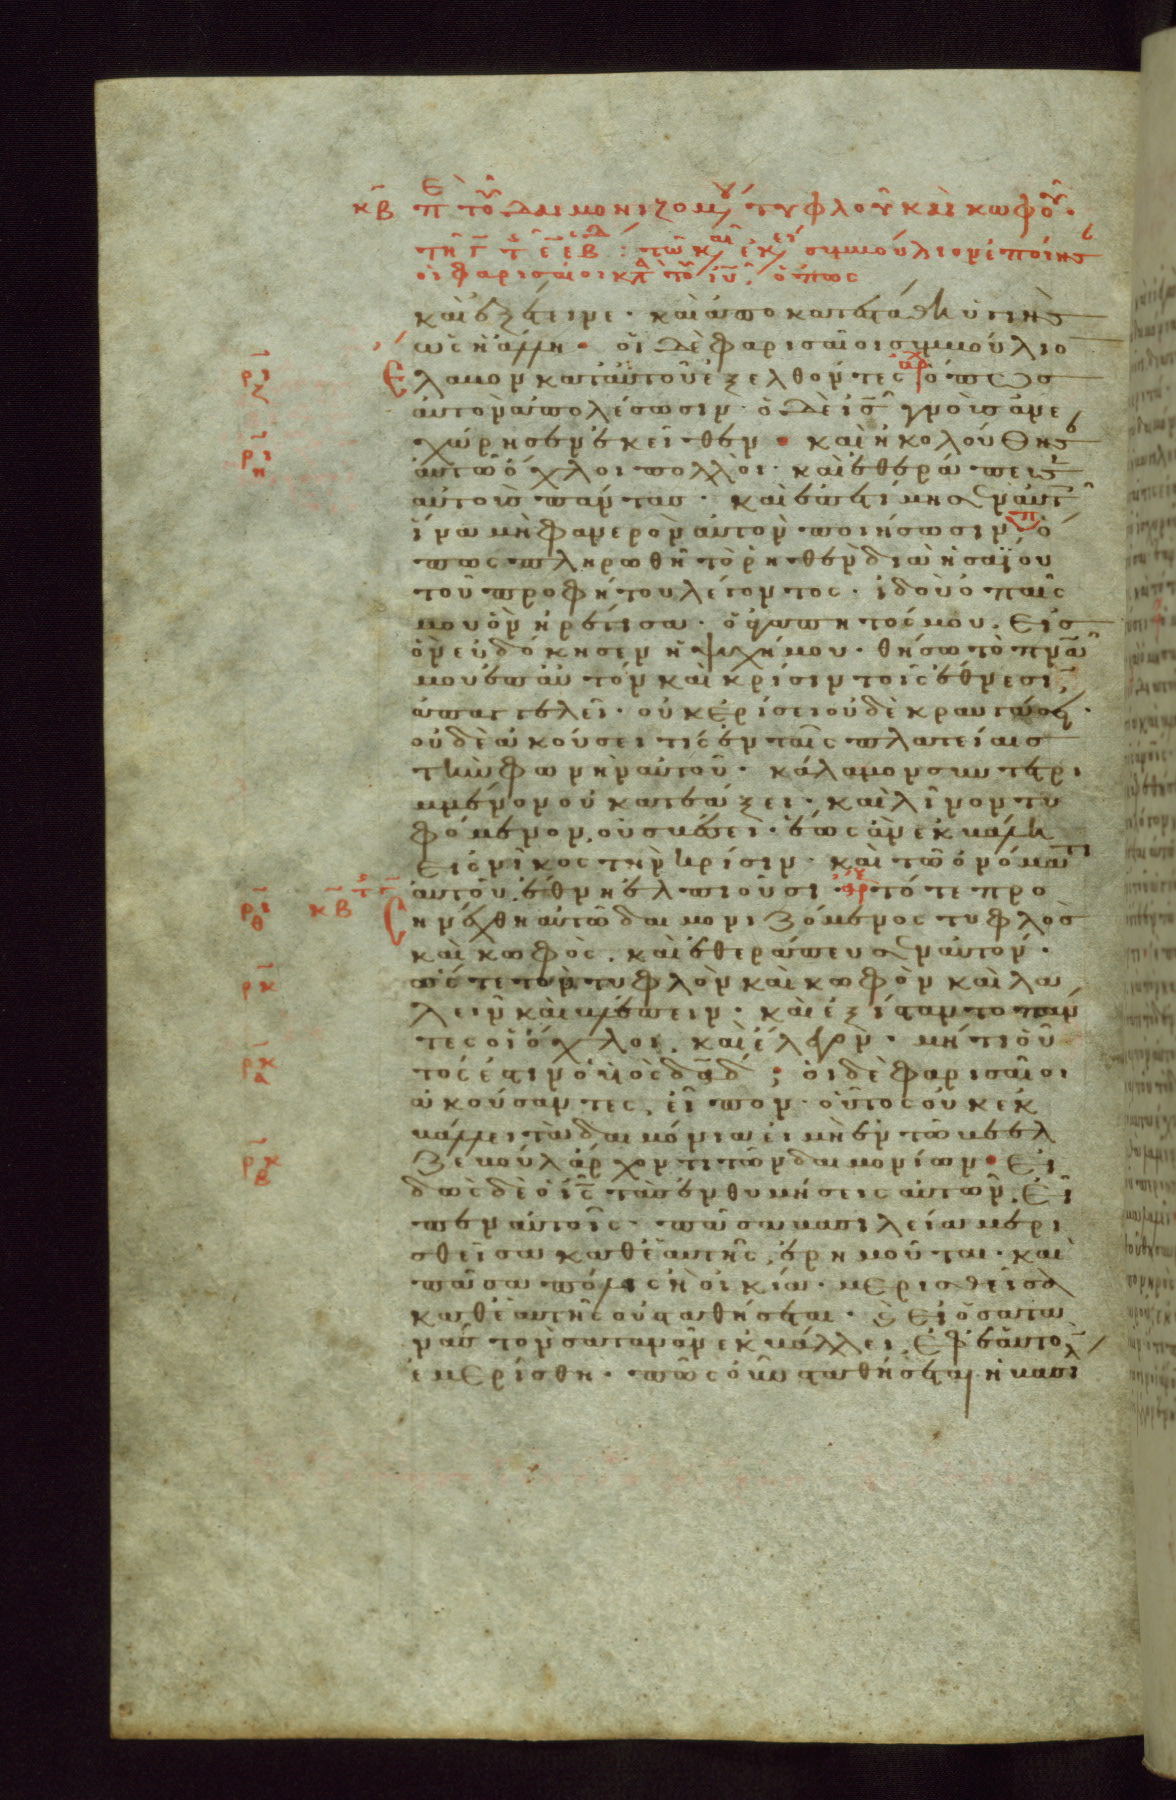 κβ πε τοῦ δαιμονιζομ τυφλοῦ καὶ κωφοῦ.
συμβούλιον ἐποίησ
οἱ φαρισαῖοι κτ τοῦ ιυ. ὅπως
καὶ ἐξέτεινε. καὶ ἀποκατεστάθη ὑγιὴς
ὡς ἡ ἄλλη. οἱ δὲ φαρισαῖοι συμβούλιο
ριζ ἔλαβον κατ αὐτοῦ ἐξελθόντες αρχ ὅπως
αὐτὸν ἀπολέσωσιν. ὁ δὲ ις γνοὺς ἀνε
ριη χώρησεν ἐκεῖθεν. καὶ ἠκολούθησ
αὐτῶ ὄχλοι πολλοὶ. καὶ ἐθεράπευσ
αὐτοὺς πάντας. καὶ ἐπετίμησεν αὐτ
ἵνα μὴ φανερὸν αὐτὸν ποιήσωσιν. ὅ
πως πληρωθῆ τὸ ρηθὲν διὰ ἡσαΐου
τοῦ προφήτου λέγοντος. ἰδοὺ ὁ παῖς
μου ὃν ἡρέτισα. ὁ ἀγαπητός μου. εἰς
ὃν εὐδόκησεν ἡ ψυχή μου. θήσω τὸ πνα
μου ἐπ αὐτόν καὶ κρίσιν τοῖς ἔθνεσι
ἀπαγγελεῖ. οὐκ ἐρίσει οὐδὲ κραυγάσει.
οὐδὲ ἀκούσει τίς ἐν ταῖς πλατείαις
τὴν φωνὴν αὐτοῦ. κάλαμον συντετρι
μμένον οὐ κατεάξει. καὶ λῖνον τυ
φόμενον οὐ σβέσει. ἕως ἂν ἐκβάλη
εἰς νῖκος τὴν κρίσιν. καὶ τῶ ὀνόματι
αὐτοῦ ἔθνη ἐλπιοῦσι αρχ τότε προ
ριθ κβ σηνέχθη αὐτῶ δαιμονιζόμενος τυφλὸς
καὶ κωφὸς. καὶ ἐθεράπευσεν αὐτόν.
ρκ ὥστε τὸν τυφλὸν καὶ κωφὸν καὶ λα
λεῖν καὶ βλέπειν. καὶ ἐξίσταντο πάν
τες οἱ ὄχλοι. καὶ ἔλεγον. μήτι οὗ
ρκα τός ἐστιν ὁ υἱὸς δαδ; οἱ δὲ φαρισαῖοι
ἀκούσαντες. εἶπον. οὗτος οὐκ ἐκ
βάλλει τὰ δαιμόνια εἰ μὴ ἐν τῶ βεελ
ρκβ ζεβοὺλ ἄρχοντι τῶν δαιμονίων. εἰ
δὼς δὲ ὁ ις τὰς ἐνθυμήσεις αὐτῶν. εἶ
πεν αὐτοῖς. πᾶσα βασιλεία μερι
σθεῖσα καθ ἑαυτῆς. ἐρημοῦται. καὶ
πᾶσα πόλις ἢ οἰκία. μερισθεῖσα
καθ ἑαυτῆς οὐ σταθήσεται. καὶ εἰ ὁ σατα
νᾶς τὸν σατανᾶν ἐκβάλλει. ἐφ ἑαυτὸ
ἐμερίσθη. πῶς οὖν σταθήσεται ἡ βασι